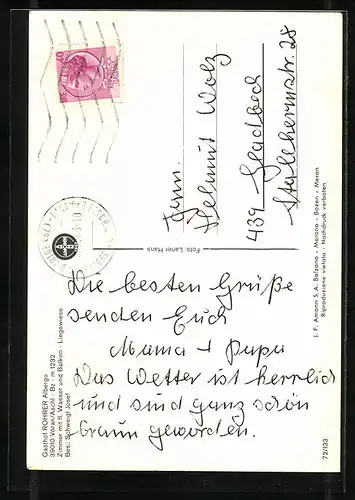 Gasthof ROHRER Albergo
39010 Vöran/Aschl - Bz - m 1232
Zimmer mit fl. Wasser und Balkon - Liegewiese
Bes.: Schweigl Josef
Die besten Grüße
senden Euch
Mama + Papa
Das Wetter ist herrlich
und sind ganz schön
braun geworden.
Foto: Laner Hans
Fam.
Helmut Wolz
439 Gladbeck
28
J. F. Amonn S. A. Bolzano - Merano - Bozen - Meran
Riproduzione vietata - Nachdruck verboten
72/133